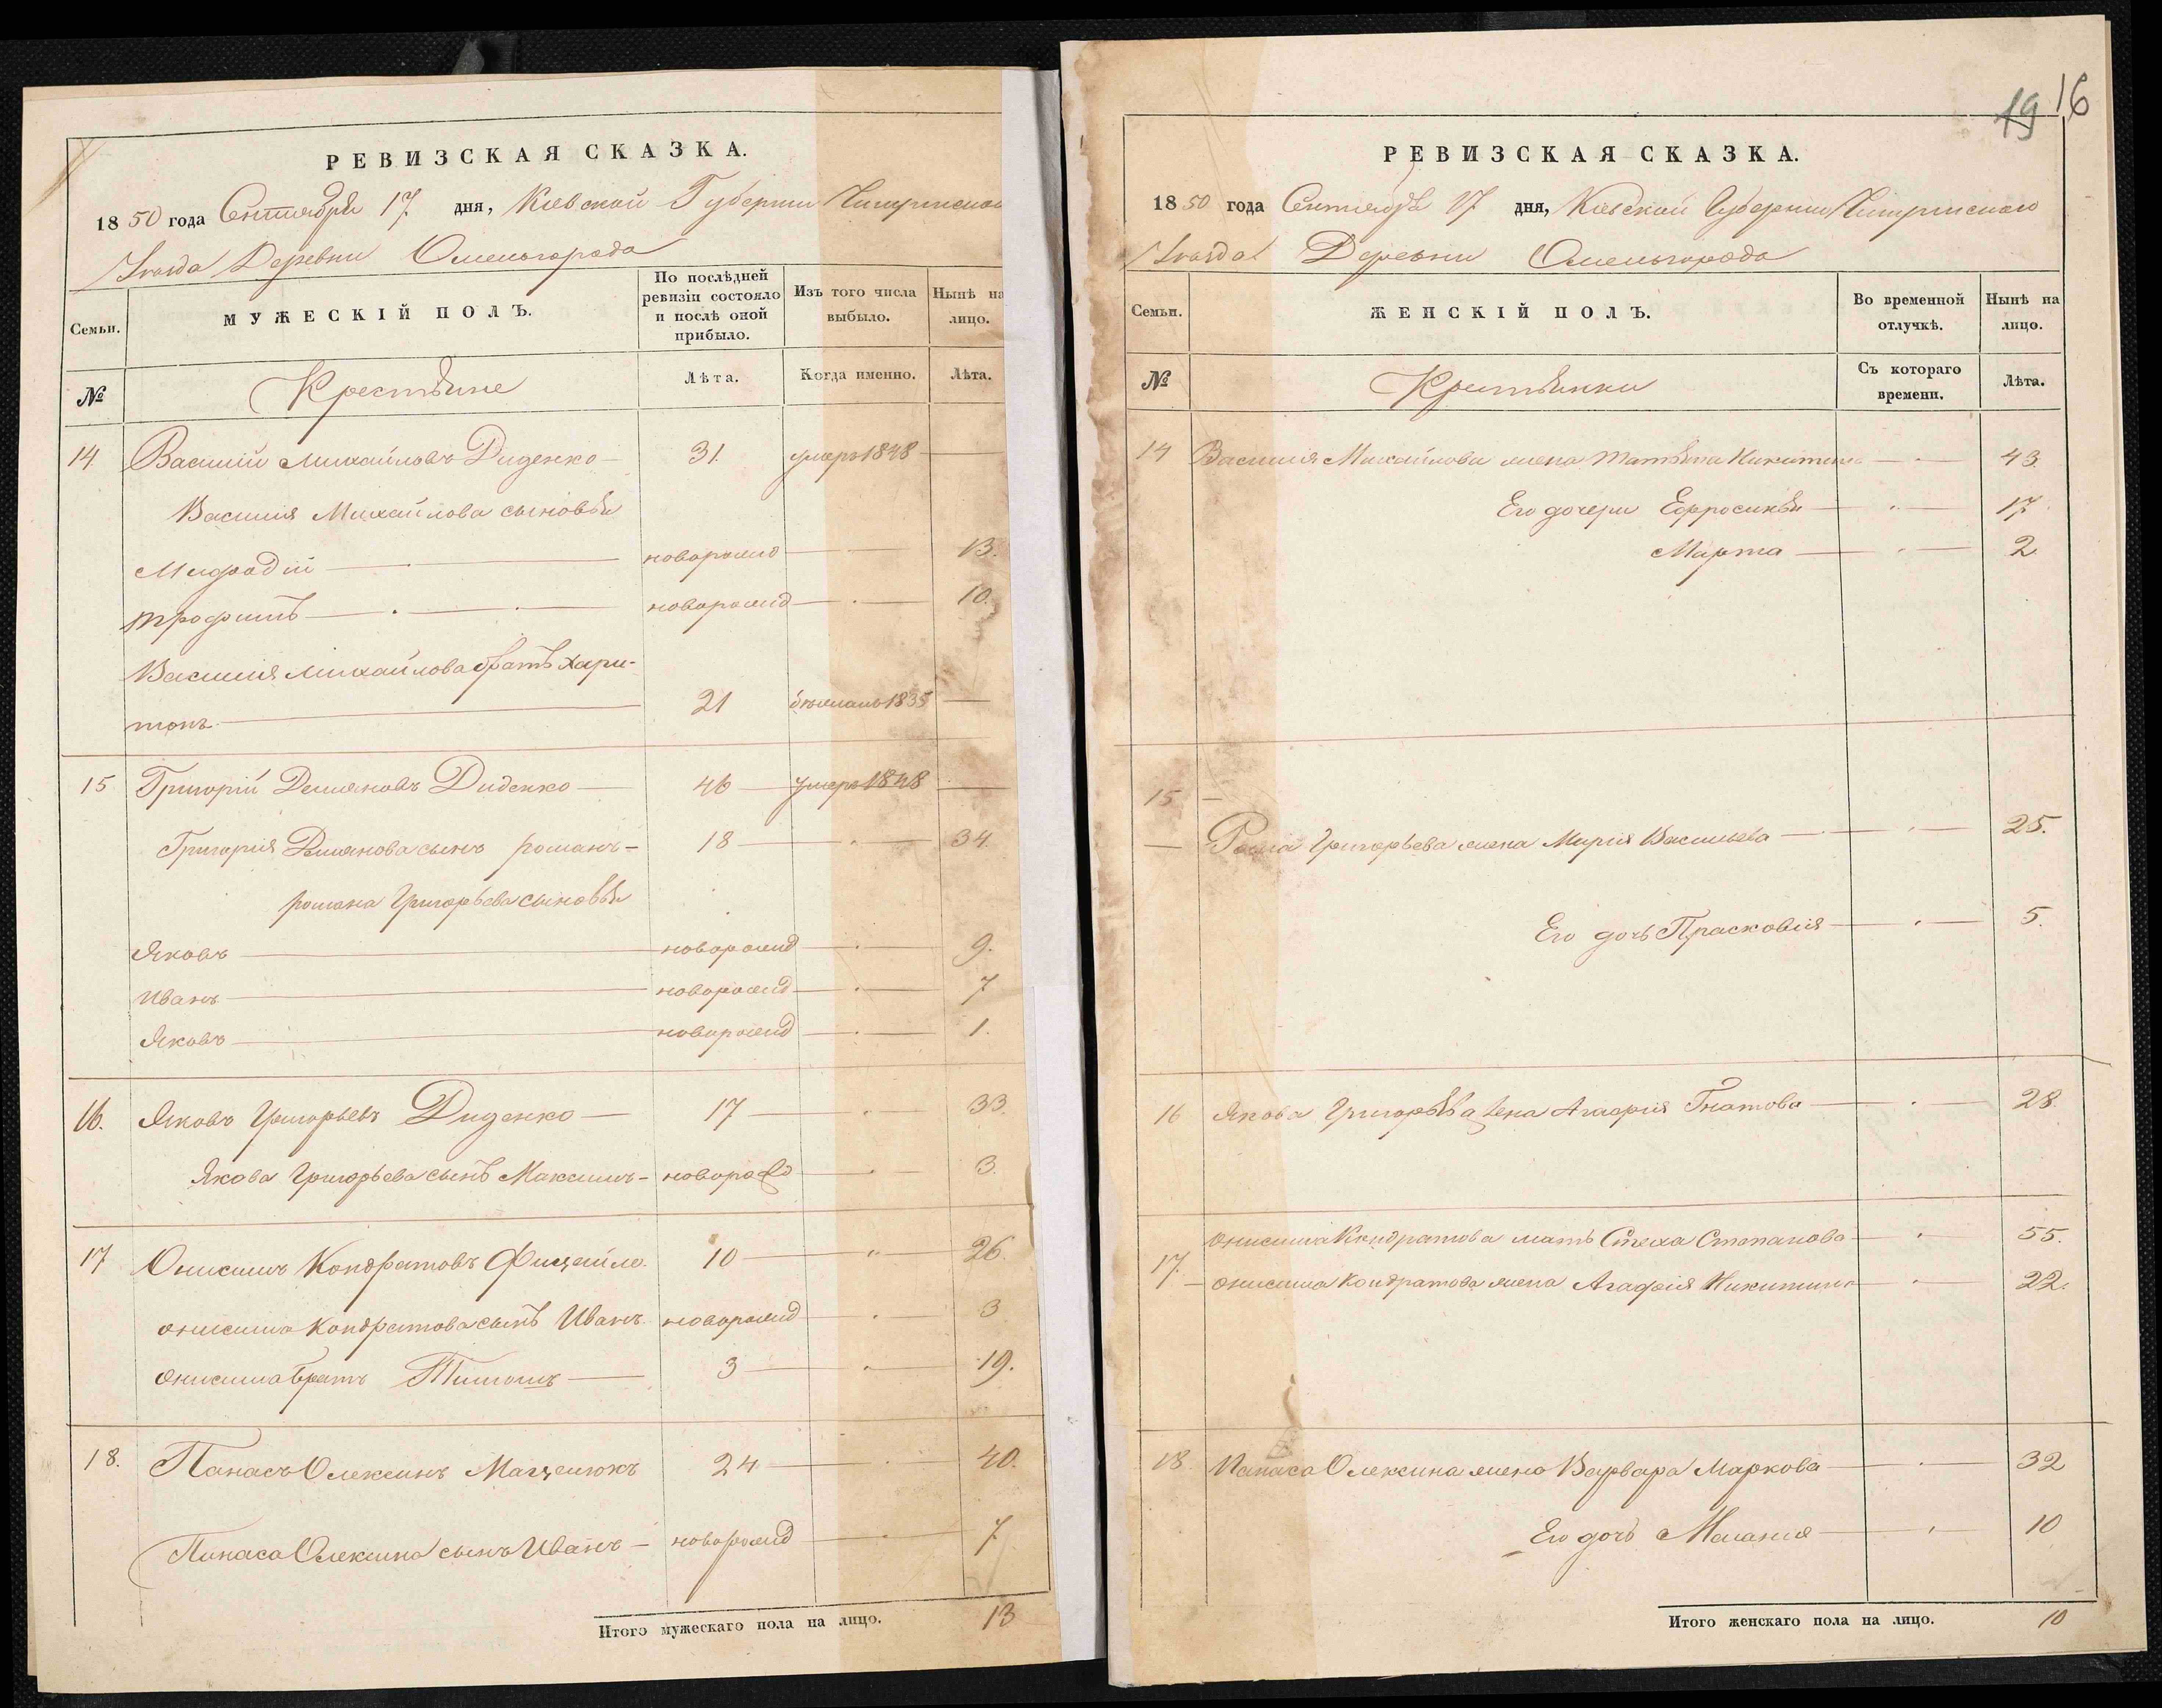 РЕВИЗСКАЯ СКАЗКА.
1850 года Сентября 17 дня, Киевской Губернии Чигиринскаго
Уезда Деревни Омельгорода
Семьи.
МУЖЕСКІЙ ПОЛЪ.
По послѣдней ревизіи состояло и послѣ оной прибыло.
Изъ того числа выбыло.
Нынѣ на лицо.
№
Крестьяне
Лѣта.
Когда именно.
Лѣта.
14. Василій Михайловъ Диденко 31. умеръ 1848
Василія Михайлова сыновья
Мефодій новорожд 13.
Трофимъ новорожд 10.
Василія Михайлова братъ Хари-
тонъ 21 бежалъ 1835
15 Григорій Демяновъ Диденко 46 умеръ 1848
Григорія Демянова сынъ романъ 18 34
романа Григорьева сыновья
Яковъ новорожд 9.
Иванъ новорожд 7
Яковъ новорожд 1.
16. Яковъ Григорьевъ Диденко 17 33.
Якова Григорьева сынъ Максимъ новорожд 3.
17 Онисимъ Кондратовъ 10 26.
Онисима Кондратова сынъ Иванъ новорожд 3
Онисима братъ 3 19.
18. Панасъ Олексинъ 24 40.
Панаса Олексина сынъ Иванъ новорожд 7
Итого мужескаго пола на лицо. 13
19 16
РЕВИЗСКАЯ СКАЗКА.
1850 года Сентября 17 дня, Киевской Губернии Чигиринскаго
Уезда Деревни Омельгорода
Семьи.
ЖЕНСКІЙ ПОЛЪ.
Во временной отлучкѣ.
Нынѣ на лицо.
№
Крестьянки
Съ котораго времени.
Лѣта.
14 Василія Михайлова жена Татьяна Никитина 43
Его дочери Ефросинья 17
Марта 2
15
Романа Григорьева жена Марія Васильева 25.
Его дочь Прасковія 5.
16 Якова Григорьева жена Агафія Гнатова 28.
Онисима Кондратова мать Стеха Степанова 55.
17. Онисима Кондратова жена Агафія Никитина 22.
18 Панаса Олексина жена Варвара Маркова 32
Его дочь Меланія 10
Итого женскаго пола на лицо. 10